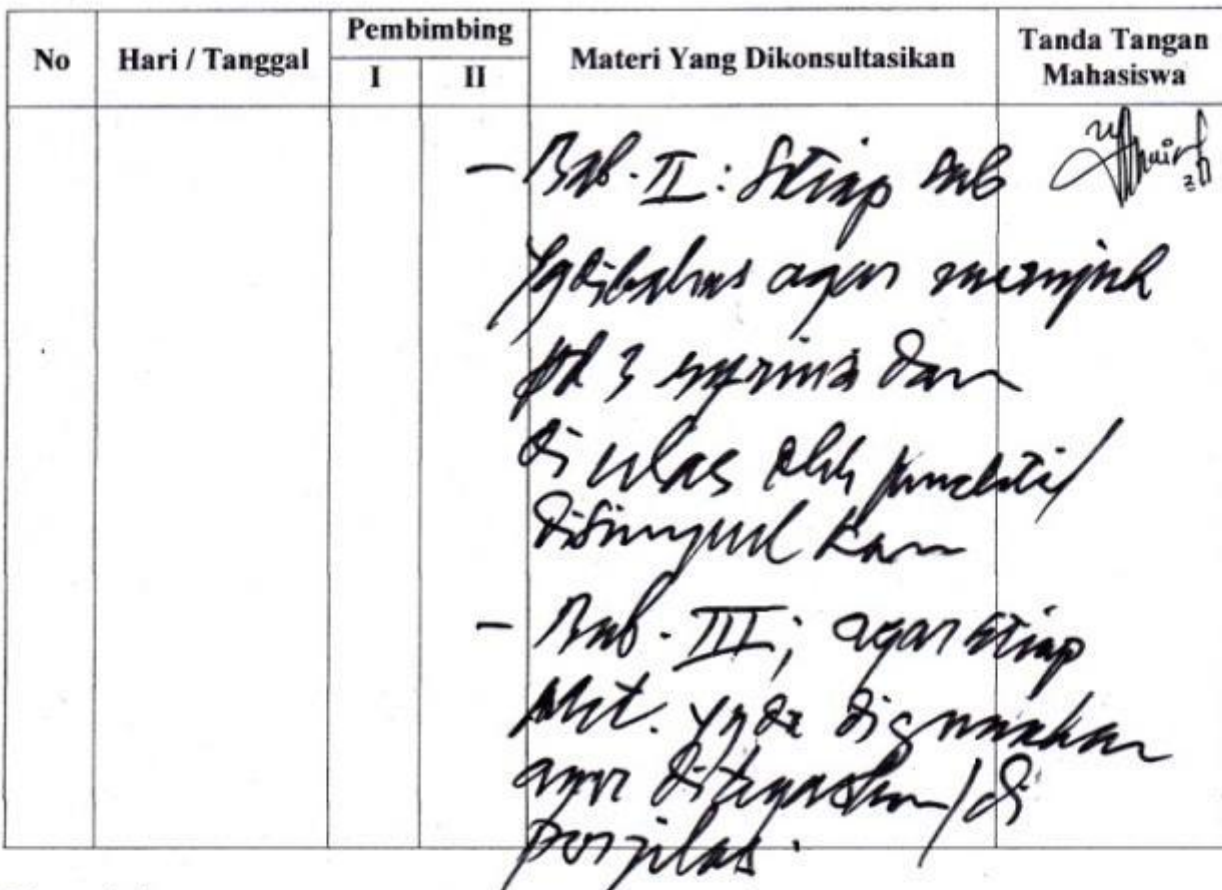 No Hari / Tanggal Pembimbing Materi Yang Dikonsultasikan Tanda Tangan Mahasiswa
I II
- Bab. II : Setiap sub
yg dibahas agar merujuk
pd 3 dan
di ulas oleh peneliti/
disimpulkan
- Bab. III ; agar setiap
Met. yg digunakan
agar ditegaskan / di
perjelas.